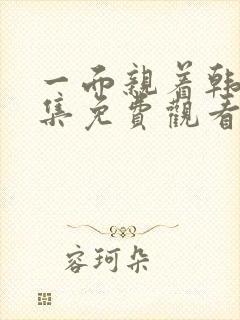 一面親着韩
集免費觀看
容珂朵